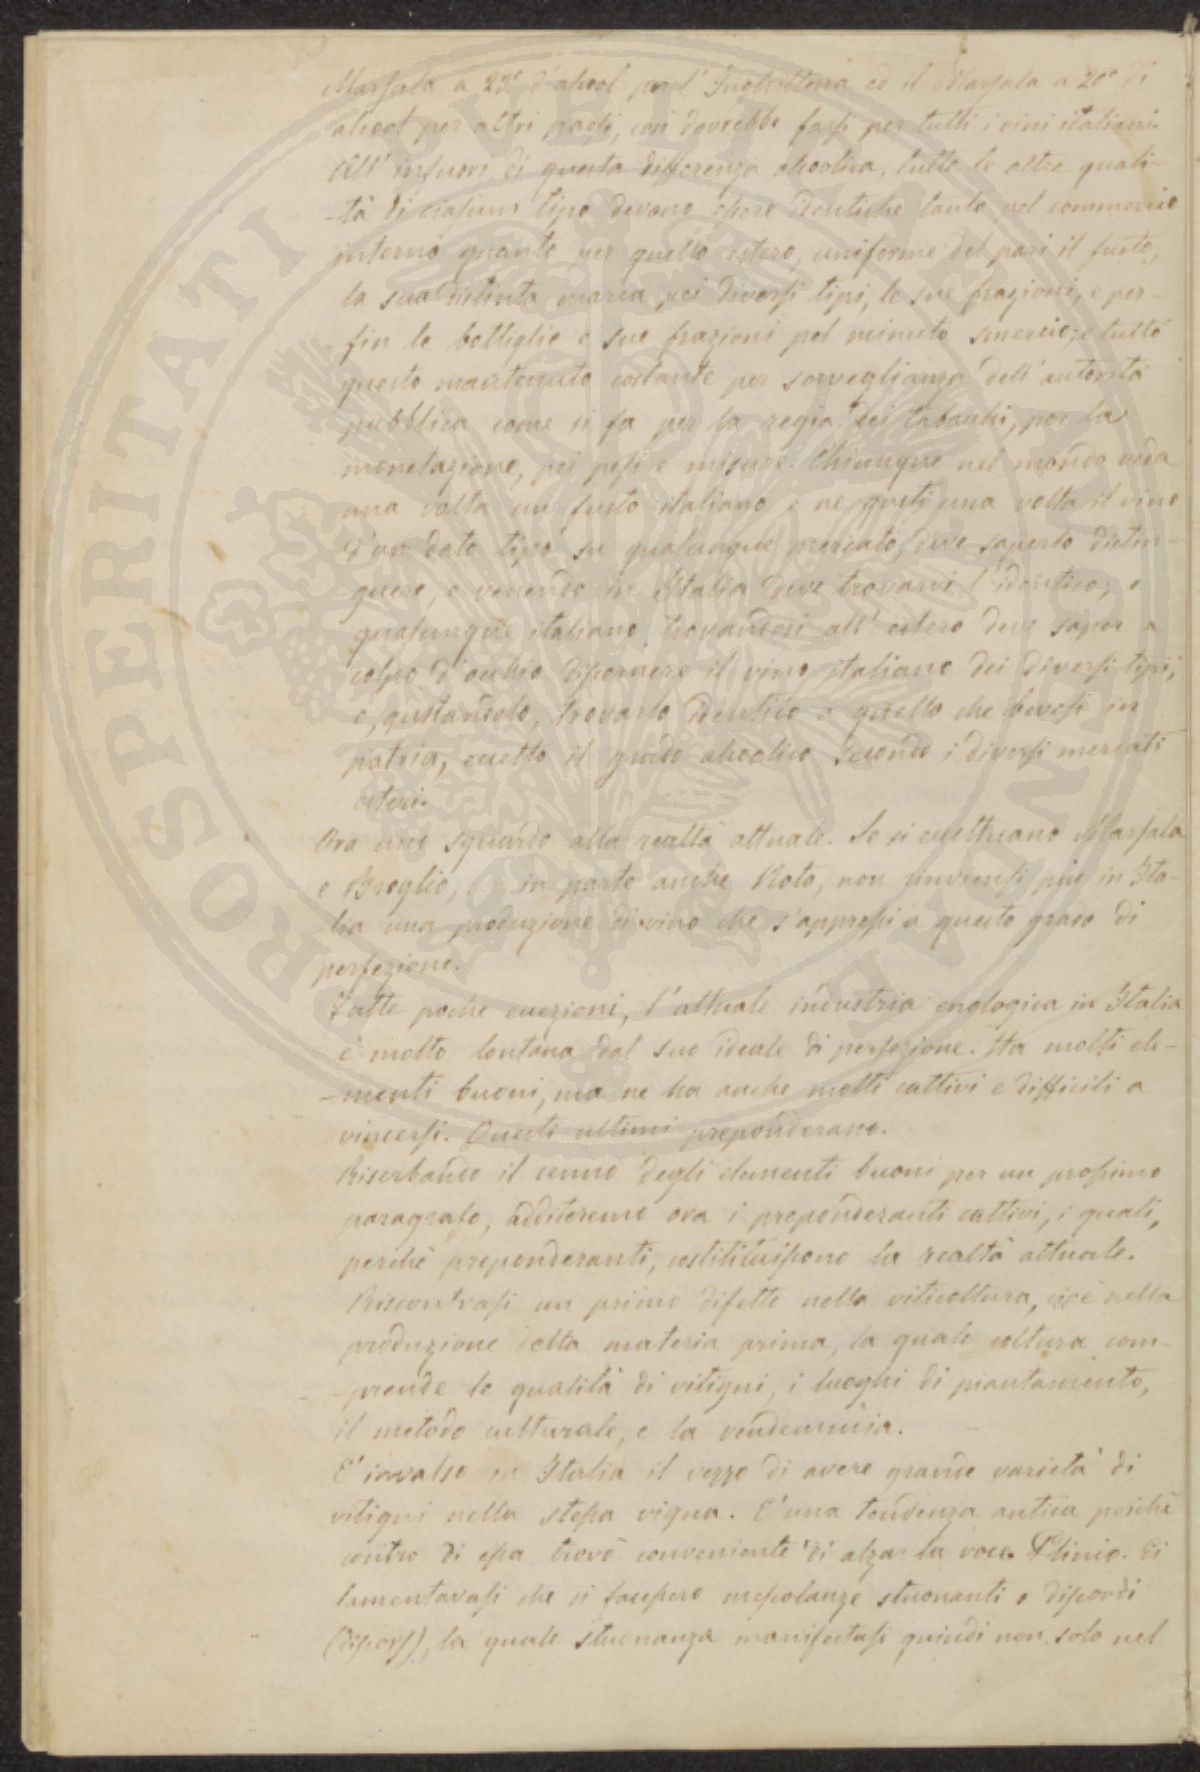 Marsala a 23° d'alcool per l'Inghilterra ed il Marsala a 20° di
alcool per altri paesi, così dovrebbe farsi per tutti i vini italiani.
All' infuori di questa differenza alcoolica, tutte le altre quali-
-tà di ciascun tipo devono essere identiche tanto pel commercio
interno quanto per quello estero, uniforme del pari il fusto,
la sua distinta marca pei diversi tipi, le sue frazioni, e per-
-fin le bottiglie e sue frazioni pel minuto smercio; e tutto
questo mantenuto costante per sorveglianza dell' autorità
pubblica come si fa per la regia dei tabacchi, per la
monetazione, pei pesi e misure. Chiunque nel mondo veda
una volta un fusto italiano e ne gusti una volta il vino
d'un dato tipo su qualunque mercato, deve saperlo distin-
-guere, e venendo in Italia deve trovarvi l'identico; e
qualunque italiano trovandosi all' estero deve saper a
colpo d'occhio discernere il vino italiano dei diversi tipi,
e, gustandolo, trovarlo identico a quello che bevesi in
patria, eccetto il grado alcoolico secondo i diversi mercati
esteri.
Ora uno sguardo alla realtà attuale. Se si eccettuano Marsala
e Broglio, e in parte anche Noto, non rinviensi più in Ita-
-lia una produzione di vino che s'appressi a questo grado di
perfezione.
Fatte poche eccezioni, l'attuale industria enologica in Italia
è molto lontana dal suo ideale di perfezione. Ha molti ele-
-menti buoni, ma ne ha anche molti cattivi e difficili a
vincersi. Questi ultimi preponderano.
Riserbando il cenno degli elementi buoni per un prossimo
paragrafo, additeremo ora i preponderanti cattivi, i quali,
perchè preponderanti, costitituiscono la realtà attuale.
Riscontrasi un primo difetto nella viticoltura, cioè nella
produzione della materia prima, la quale coltura com-
-prende le qualità di vitigni, i luoghi di piantamento,
il metodo culturale, e la vendemmia.
E' invalso in Italia il vezzo di avere grande varietà di
vitigni nella stessa vigna. E' una tendenza antica poichè
contro di essa trovò conveniente di alzar la voce Plinio. Ei
lamentavasi che si facessero mescolanze stuonanti e discordi
(discors), la quale stuonanza manifestasi quindi non solo nel
PROSPERITATI PUBLICAE AUGENDAE